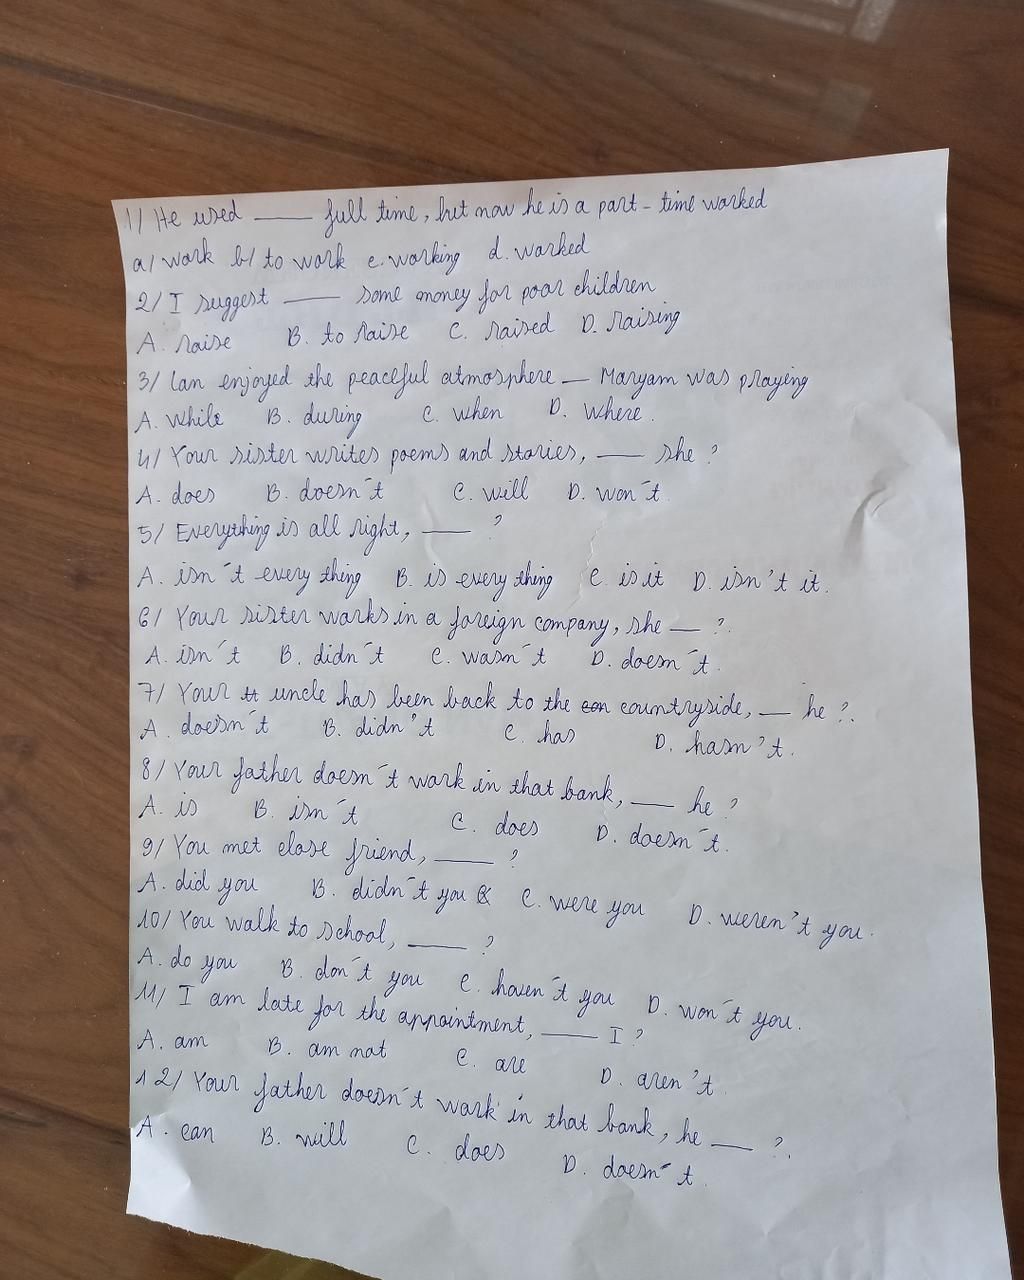 1/ He used ____ full time, but now he is a part-time worked
a/ work b/ to work c. working d. worked
2/ I suggest ____ some money for poor children
A. raise B. to raise C. raised D. raising
3/ Ian enjoyed the peaceful atmosphere __ Maryam was praying
A. while B. during C. when D. where.
4/ Your sister writes poems and stories, ____ she?
A. does B. doesn't C. will D. won't
5/ Everything is all right, ____ ?
A. isn't every thing B. is every thing C. is it D. isn't it.
6/ Your sister works in a foreign company, she ___ ?.
A. isn't B. didn't C. wasn't D. doesn't.
7/ Your tt uncle has been back to the con countryside, ___ he?.
A. doesn't B. didn't C. has D. hasn't.
8/ Your father doesn't work in that bank, ____ he?
A. is B. isn't C. does D. doesn't.
9/ You met close friend, ____ ?
A. did you B. didn't you C. were you D. weren't you.
10/ You walk to school, ____ ?
A. do you B. don't you C. haven't you D. won't you.
11/ I am late for the appointment, ____ I?
A. am B. am not C. are D. aren't.
12/ Your father doesn't work in that bank, he ___ ?.
A. can B. will C. does D. doesn't.